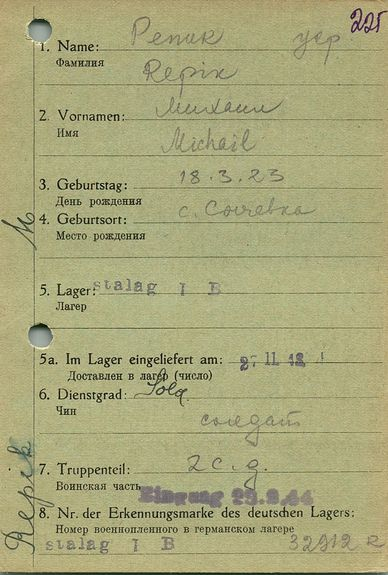 225
1. Name: Репик укр
Фамилия Repik
2. Vornamen: Михаил
Имя Michail
3. Geburtstag: 18.3.23
День рождения
4. Geburtsort: с.
Место рождения
5. Lager: stalag I B
Лагер
5a. Im Lager eingeliefert am: 27 11 42
Доставлен в лагер (число)
6. Dienstgrad: Sold.
Чин солдат
7. Truppenteil: 2 с.д.
Воинская часть Eingang 29.2.44
8. Nr. der Erkennungsmarke des deutschen Lagers:
Номер военнопленного в германском лагере
stalag I B 32912 R
Repik M